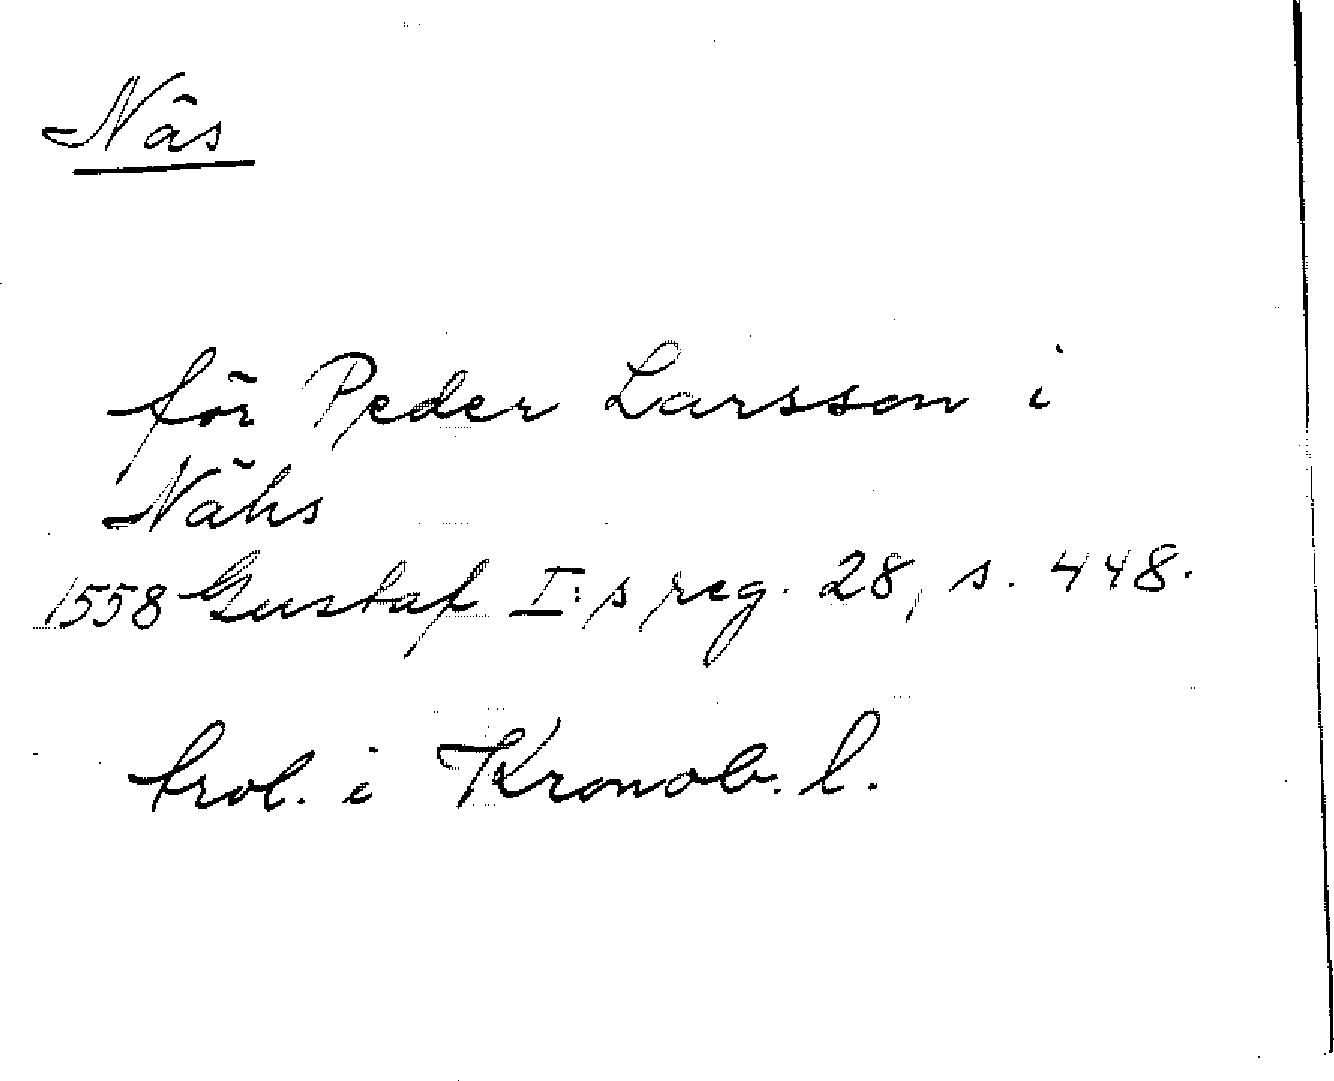 Näs
för Peder Larsson i
Nähs
1558 Gustaf I:s reg. 28, s. 448.
trol. i Kronob. l.